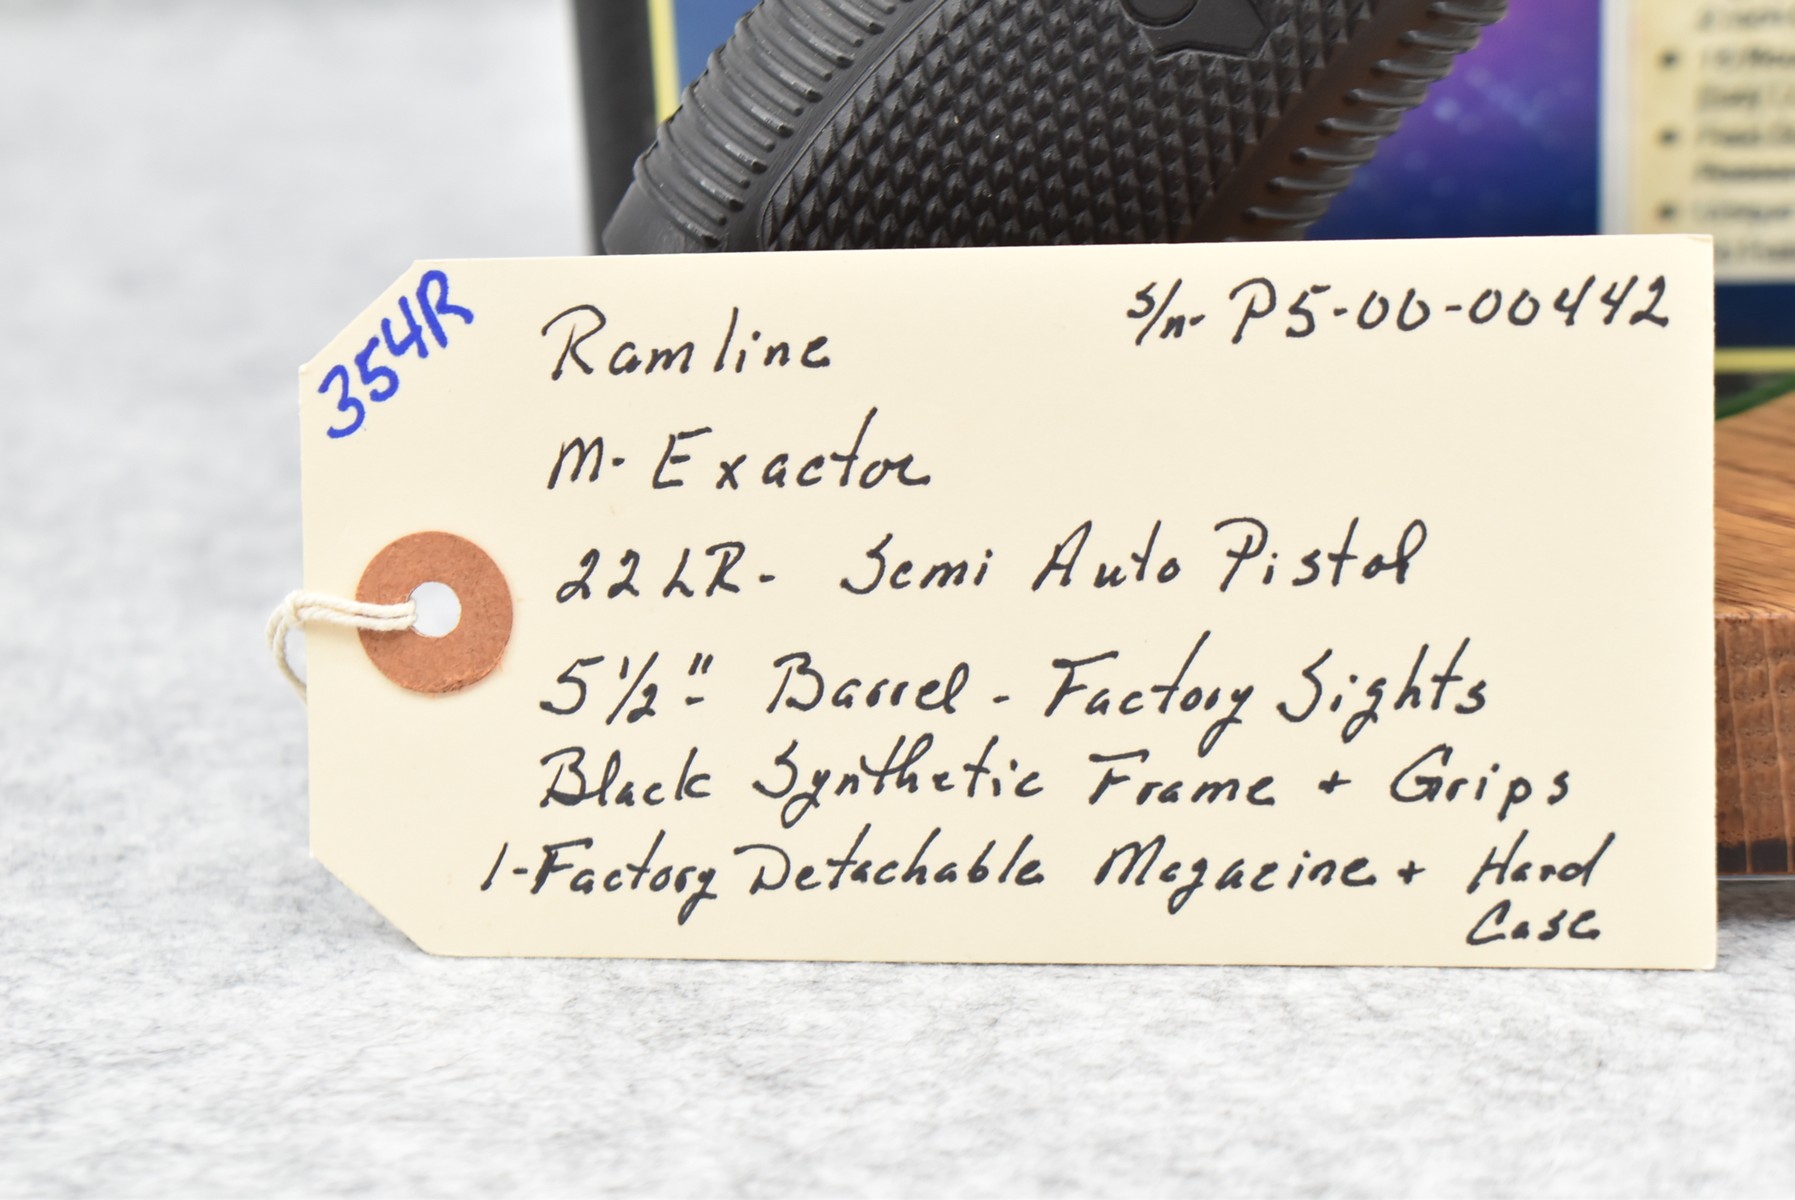 354R
s/n- P5-00-00442
Ramline
M- Exactor
22 LR- Semi Auto Pistol
5 1/2"- Barrel - Factory Sights
Black Synthetic Frame + Grips
1-Factory Detachable Magazine + Hard
Case